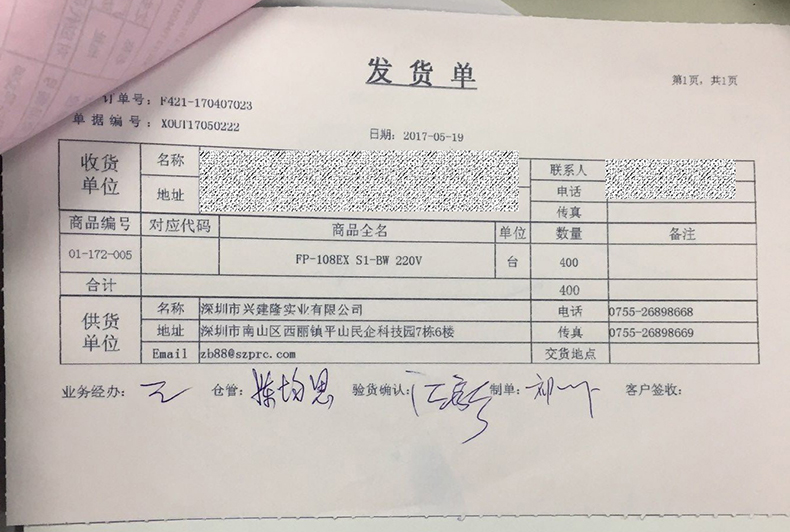 发货单
第1页, 共1页
订单号: F421-170407023
单据编号: XOUT17050222
日期: 2017-05-19
收货单位 名称 联系人
地址 电话
传真
商品编号 对应代码 商品全名 单位 数量 备注
01-172-005 FP-108EX S1-BW 220V 台 400
合计 400
供货单位 名称 深圳市兴建隆实业有限公司 电话 0755-26898668
地址 深圳市南山区西丽镇平山民企科技园7栋6楼 传真 0755-26898669
Email zb88@szprc.com 交货地点
业务经办: 仓管: 验货确认: 制单: 客户签收: